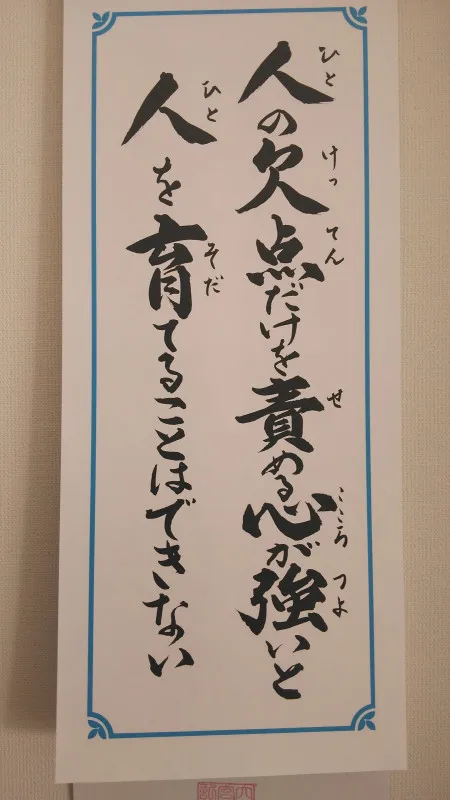 人の欠点だけを責める心が強いと
ひと けってん せ こころ つよ
人を育てることはできない
ひと そだ